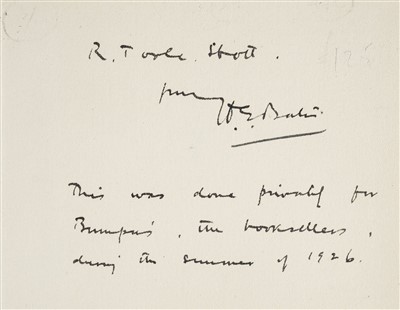 R. Toole Stott.
from H. E. Bates.
This was done privately for
Bumpus, the booksellers,
during the summer of 1926.